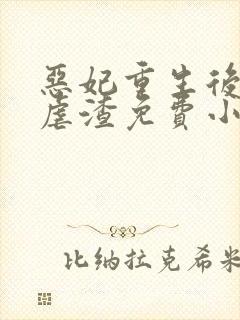 惡妃重生後
虐渣免費小
比纳拉克希米